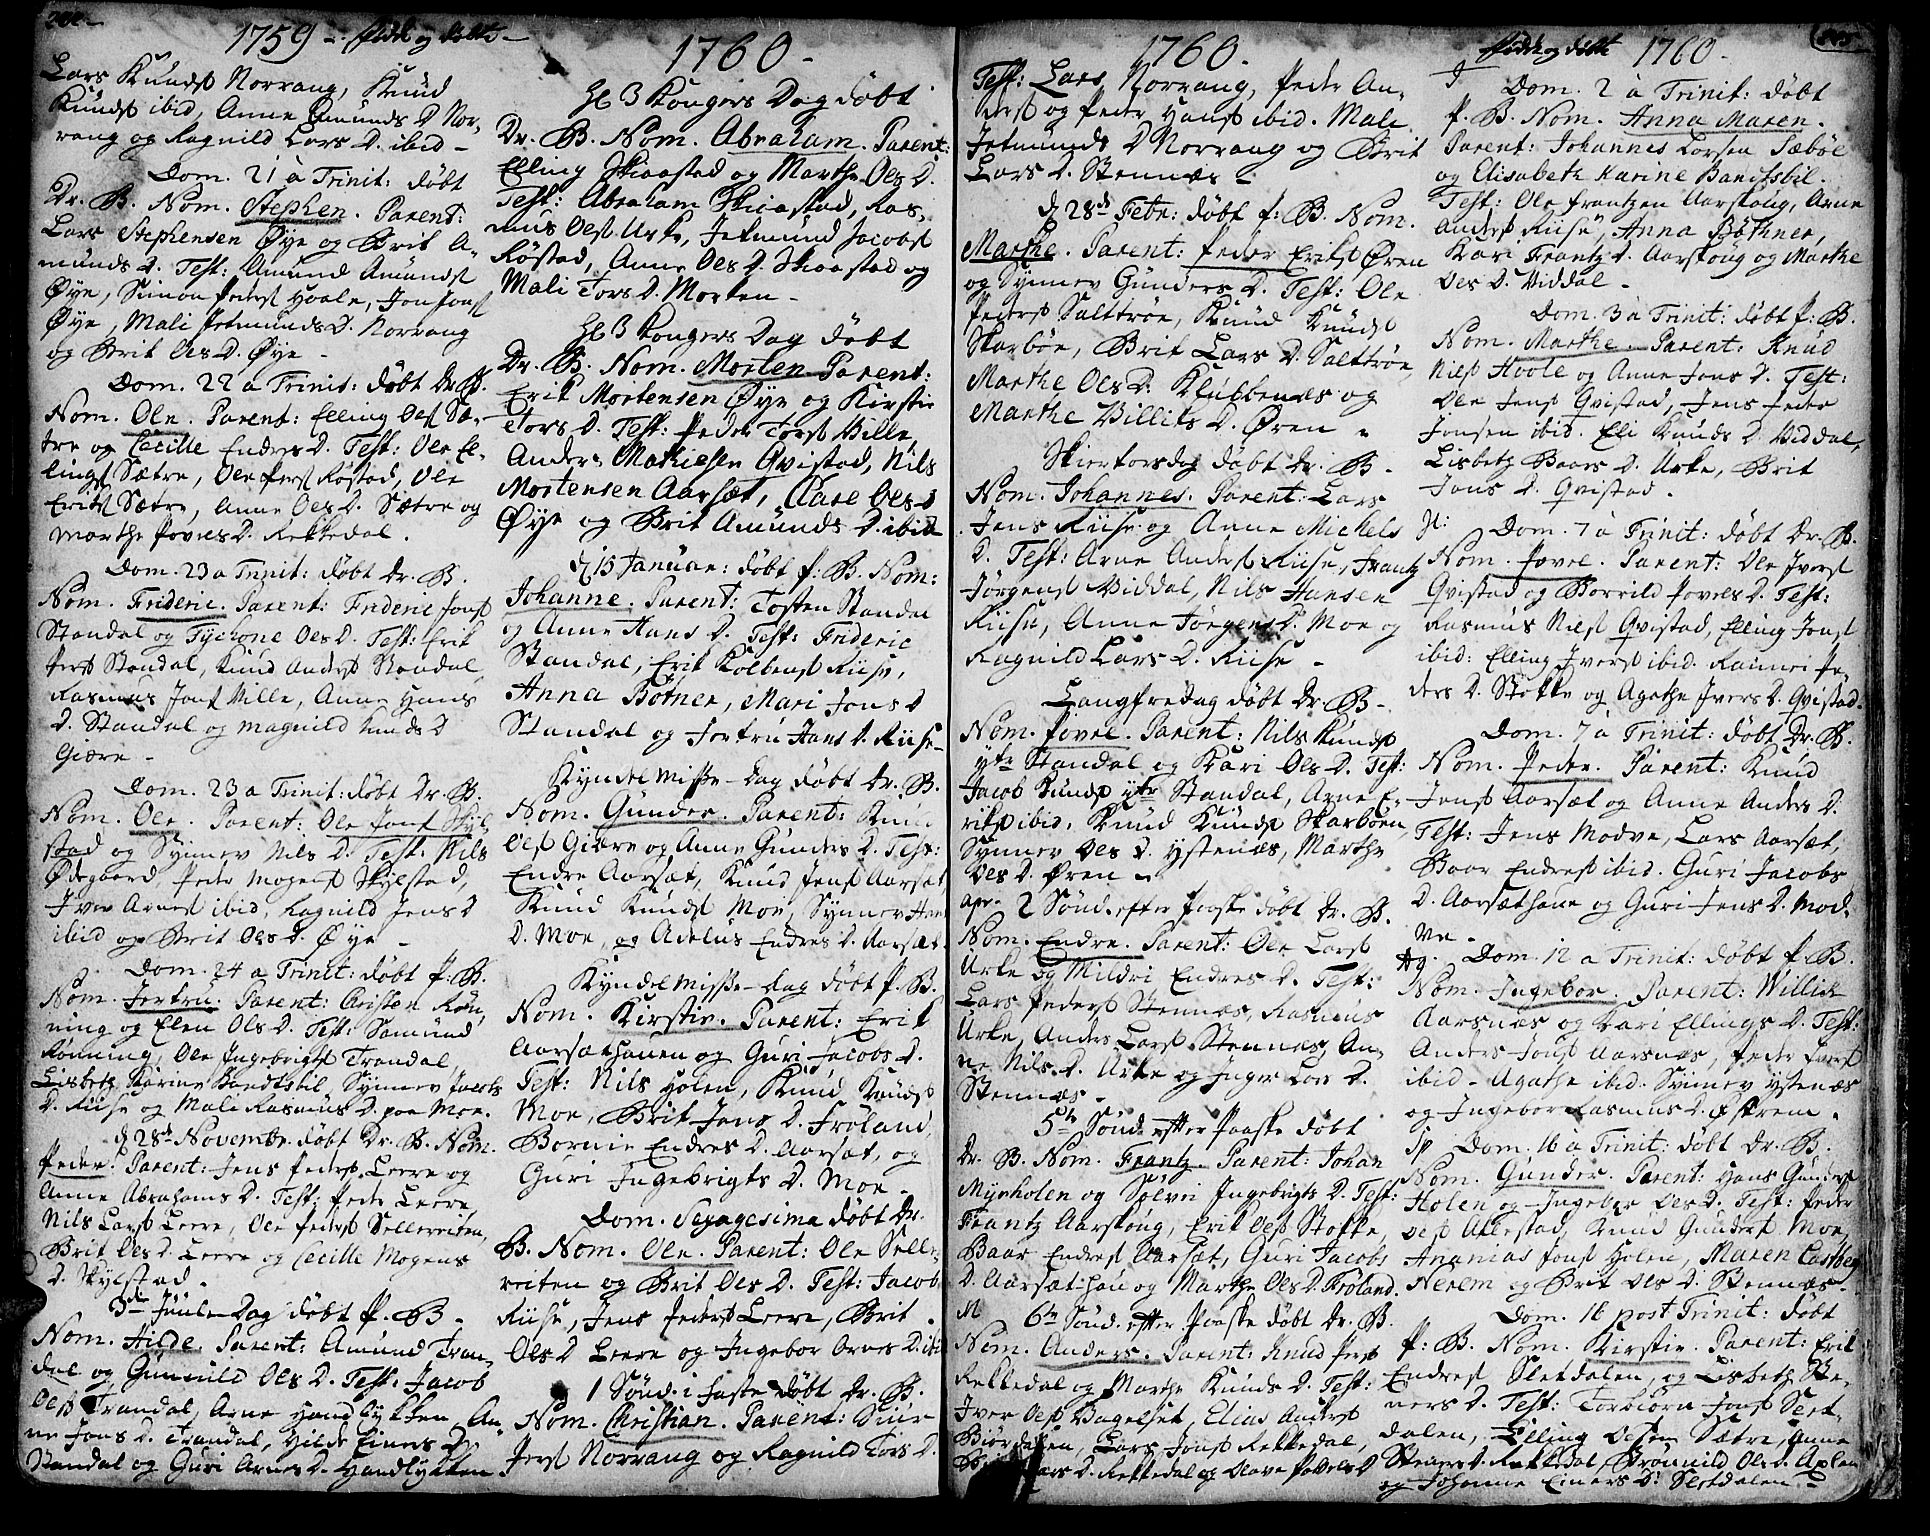 1759 - fødde og døbte -
Lars Knuds Norrang, Knud
Knuds ibid, Anne Amunds D Nor-
rang og Ragnild Lars D. ibid -
Dom. 21 à Trinit: døbt
Dr. B. Nom. Stephen. Parent:
Lars Stephensen Øye og Brit A-
munds D. Test: Amund Amunds
Øye, Simon Peders Hoale, Jon Jons
Øye, Mali Jetmunds D. Norrang
og Brit Oles D. Øye -
Dom. 22 a Trinit: døbt Dr. B.
Nom. Ole. Parent: Elling Oles Sæ-
tre og Cecille Endres D. Test: Ole El-
lings Sætre, Ole Pers Røstad, Ole
Eriks Sætre, Anne Oles D. Sætre og
Marthe Povels D. Rekkedal.
Dom. 23 a Trinit: døbt Dr. B.
Nom. Frideric. Parent: Frideric Jons
Standal og Tychone Oles D. Test: Erik
Pers Standal, Knud Anders Standal,
Rasmus Jons Ville, Anne Hans
D. Standal og Magnild Knuds D
Giære -
Dom. 23 a Trinit: døbt Dr. B.
Nom. Ole. Parent: Ole Jons Skyl-
stad og Synnev Nils D. Test: Nils
Ødegaard, Peder Mogens Skylstad,
Iver Arnes ibid, Ragnild Jens D
ibid og Brit Oles D. Øye -
Dom. 24 a Trinit: døbt P. B.
Nom. Jertru. Parent: Christen Røn-
ning og Elen Ols D. Test: Samund
Rønning, Ole Ingebrigts Trandal,
Lisbeth Karine Bandtsbil, Synnev Jacobs
D. Riise og Mali Rasmus D. paa Moe.
d 28de Novembr. døbt Dr. B. Nom.
Peder. Parent: Jens Peders Leere og
Anne Abrahams D. Test: Peder Leere,
Nils Lars Leere, Ole Peders Sellereiten,
Brit Oles D. Leere og Cecille Mogens
D. Skylstad.
3de Juule Dag døbt P. B.
Nom. Hilde. Parent: Amund Tran-
dal og Gunnild Ols D. Test: Jacob
Oles Trandal, Arne Handlykken, An-
ne Jons D. Trandal, Hilde Einers D
Standal og Guri Arnes D. Handlykken
1760 -
Hl 3 Kongers Dag døbt
Dr. B. Nom. Abraham. Parent:
Elling Skiaastad og Marthe Oles D.
Test: Abraham Skiaastad, Ras-
mus Oles Urke, Jetmund Jacobs
Røstad, Anne Oles D. Skiaastad og
Mali Tors D. Morten -
Hl 3 Kongers Dag døbt
Dr. B. Nom. Morten Parent:
Erik Mortensen Øye og Kirstie
Tors D. Test: Peder Tors Ville,
Anders Mathiesen Qvistad, Nils
Mortensen Aarsæt, Clare Oles D
Øye og Brit Amunds D. ibid
d 13 Januar: døbt P. B. Nom:
Johanne. Parent: Tosten Standal
og Anne Hans D. Test: Frideric
Standal, Erik Kolbens Riise,
Anna Bøtner, Mari Jons D
Standal og Jertru Hans D. Riise -
Kyndelmisse-Dag døbt Dr. B.
Nom. Gunder. Parent: Knud
Oles Giære og Anne Gunders D. Test:
Endre Aarsæt, Knud Jens Aarsæt
Knud Knuds Moe, Synnev Hans
D. Moe, og Adelus Endres D. Aarsæt.
Kyndelmisse-dag døbt P. B.
Nom. Kirstie. Parent: Erik
Aarsæthauen og Guri Jacobs D.
Test: Nils Holen, Knud Knuds
Moe, Brit Jens D. Frøland,
Bornie Endres D. Aarsæt, og
Guri Ingebrigts D. Moe -
Dom. Sexagesima døbt Dr.
B. Nom. Ole. Parent: Ole Selle-
reiten og Brit Oles D. Test: Jacob
Riise, Jens Peders Leere, Brit
Ols D Leere og Ingebor Arnes D. ibid
1 Sønd. i Faste døbt Dr. B.
Nom. Christian. Parent: Siur
Jens Norrang og Ragnild Tors D.
1760 -
Test: Lars Norrang, Peder An-
ders og Peder Hans ibid. Mali
Jetmunds D Norrang og Brit
Lars D. Stennæs -
d 28de Febr: døbt P. B. Nom.
Marthe. Parent: Peder Eriks Øren
og Synnev Gunders D. Test: Ole
Peders Salttrøe, Knud Knuds
Skarbøe, Brit Lars D. Salttrøe
Marthe Oles D. Klubbenæs og
Marthe Billits D. Øren -
Skiertorsdag døbt Dr. B.
Nom. Johannes. Parent: Lars
Jens Riise og Anne Michels
D. Test: Arne Anders Riise, Frantz
Jørgens Viddal, Nils Hansen
Riise, Anne Jørgens D. Moe og
Ragnild Lars D. Riise -
Langfredag døbt Dr. B.
Nom. Povel. Parent: Nils Knuds
ytr Standal og Kari Oles D. Test:
Jacob Knuds ytr Standal, Arne E-
riks ibid, Knud Knuds Skarbøen,
Synnev Oles D. Ystenæs, Marthe
Oles D. Øren -
Apr. 2 Sønd. efter Paaske døbt Dr. B.
Nom. Endre. Parent: Ole Lars
Urke og Mildri Endres D. Test:
Lars Peders Stennæs, Rasmus
Urke, Anders Lars Stennæs, An-
ne Nils D. Urke og Inger Lars D.
Stennæs -
5te Sønd. efter Paaske døbt
Dr. B. Nom. Frantz. Parent: Johan
Myrholen og Sølvei Ingebrigts D. Test:
Frantz Aarskoug, Erik Oles Stokke,
Baar Endres Aarsæt, Guri Jacobs
D. Aarsæthau og Marthe Oles D. Frøland.
M 6te Sønd. efter Paaske døbt Dr. B.
Nom. Anders. Parent: Knud Pers
Rekkedal og Marthe Knuds D. Test:
Iver Oles Bagelset, Elias Anders
Biørdalen, Lars Jons Rekkedal,
Lars D. Rekkedal og Olave Povels D
fødde og døbte 1760 -
J Dom. 2 à Trinit: døbt
P. B. Nom. Anna Maren.
Parent: Johannes Larsen Sæbøe
og Elisabeth Karine Bandtsbil.
Test: Ole Frantzen Aarskoug, Arne
Anders Riise, Anna Bøthner,
Kari Frantz D. Aarskoug og Marthe
Oles D. Viddal -
Dom. 3 a Trinit: døbt P. B.
Nom. Marthe. Parent: Knud
Nils Hoole og Anne Jens D. Test:
Ole Jens Qvistad, Jens Peder
Jonsen ibid. Eli Knuds D. Viddal,
Lisbeth Baars D. Urke, Brit
Jons D. Qvistad.
Jl: Dom. 7 à Trinit: døbt Dr. B.
Nom. Povel. Parent: Ole Ivers
Qvistad og Borrild Povels D. Test:
Rasmus Nils Qvistad, Elling Jons
ibid: Elling Ivers ibid. Ranvei Pe-
ders D. Stokke og Agathe Ivers D. Qvistad.
Dom. 7 à Trinit: døbt Dr. B.
Nom. Peder. Parent: Knud
Jens Aarsæt og Anne Anders D.
Test: Jens Modve, Lars Aarsæt,
Baar Endres ibid. Guri Jacobs
D. Aarsæthaue og Guri Jens D. Mod-
ve -
Ag. Dom. 12 a Trinit: døbt P. B.
Nom. Ingebor. Parent: Willik
Aarsnæs og Kari Ellings D. Test:
Anders Jons Aarsnæs, Peder Ivers
ibid - Agathe ibid. Synnev Ystenæs
og Ingebor Rasmus D. Østrem.
Sp Dom. 16 à Trinit: døbt Dr. B.
Nom. Gunder. Parent: Hans Gunders
Holen og Ingebor Oles D. Test: Peder
Oles Aklestad, Knud Gunders Moe,
Ananias Jons Holen, Maren Castberg
Nerem og Brit Ols D. Stennæs.
Dom. 16 post Trinit: døbt
P. B. Nom. Kirstie. Parent: Erik
Endres Sletdalen, og Lisbeth Ste-
ners D. Test: Torbiørn Jons Slet-
dalen, Elling Olsen Sætre, Anne
Steners D. Rekkedal, Brønnild Ols D. Aplan
og Johanne Einers D. Sletdalen -